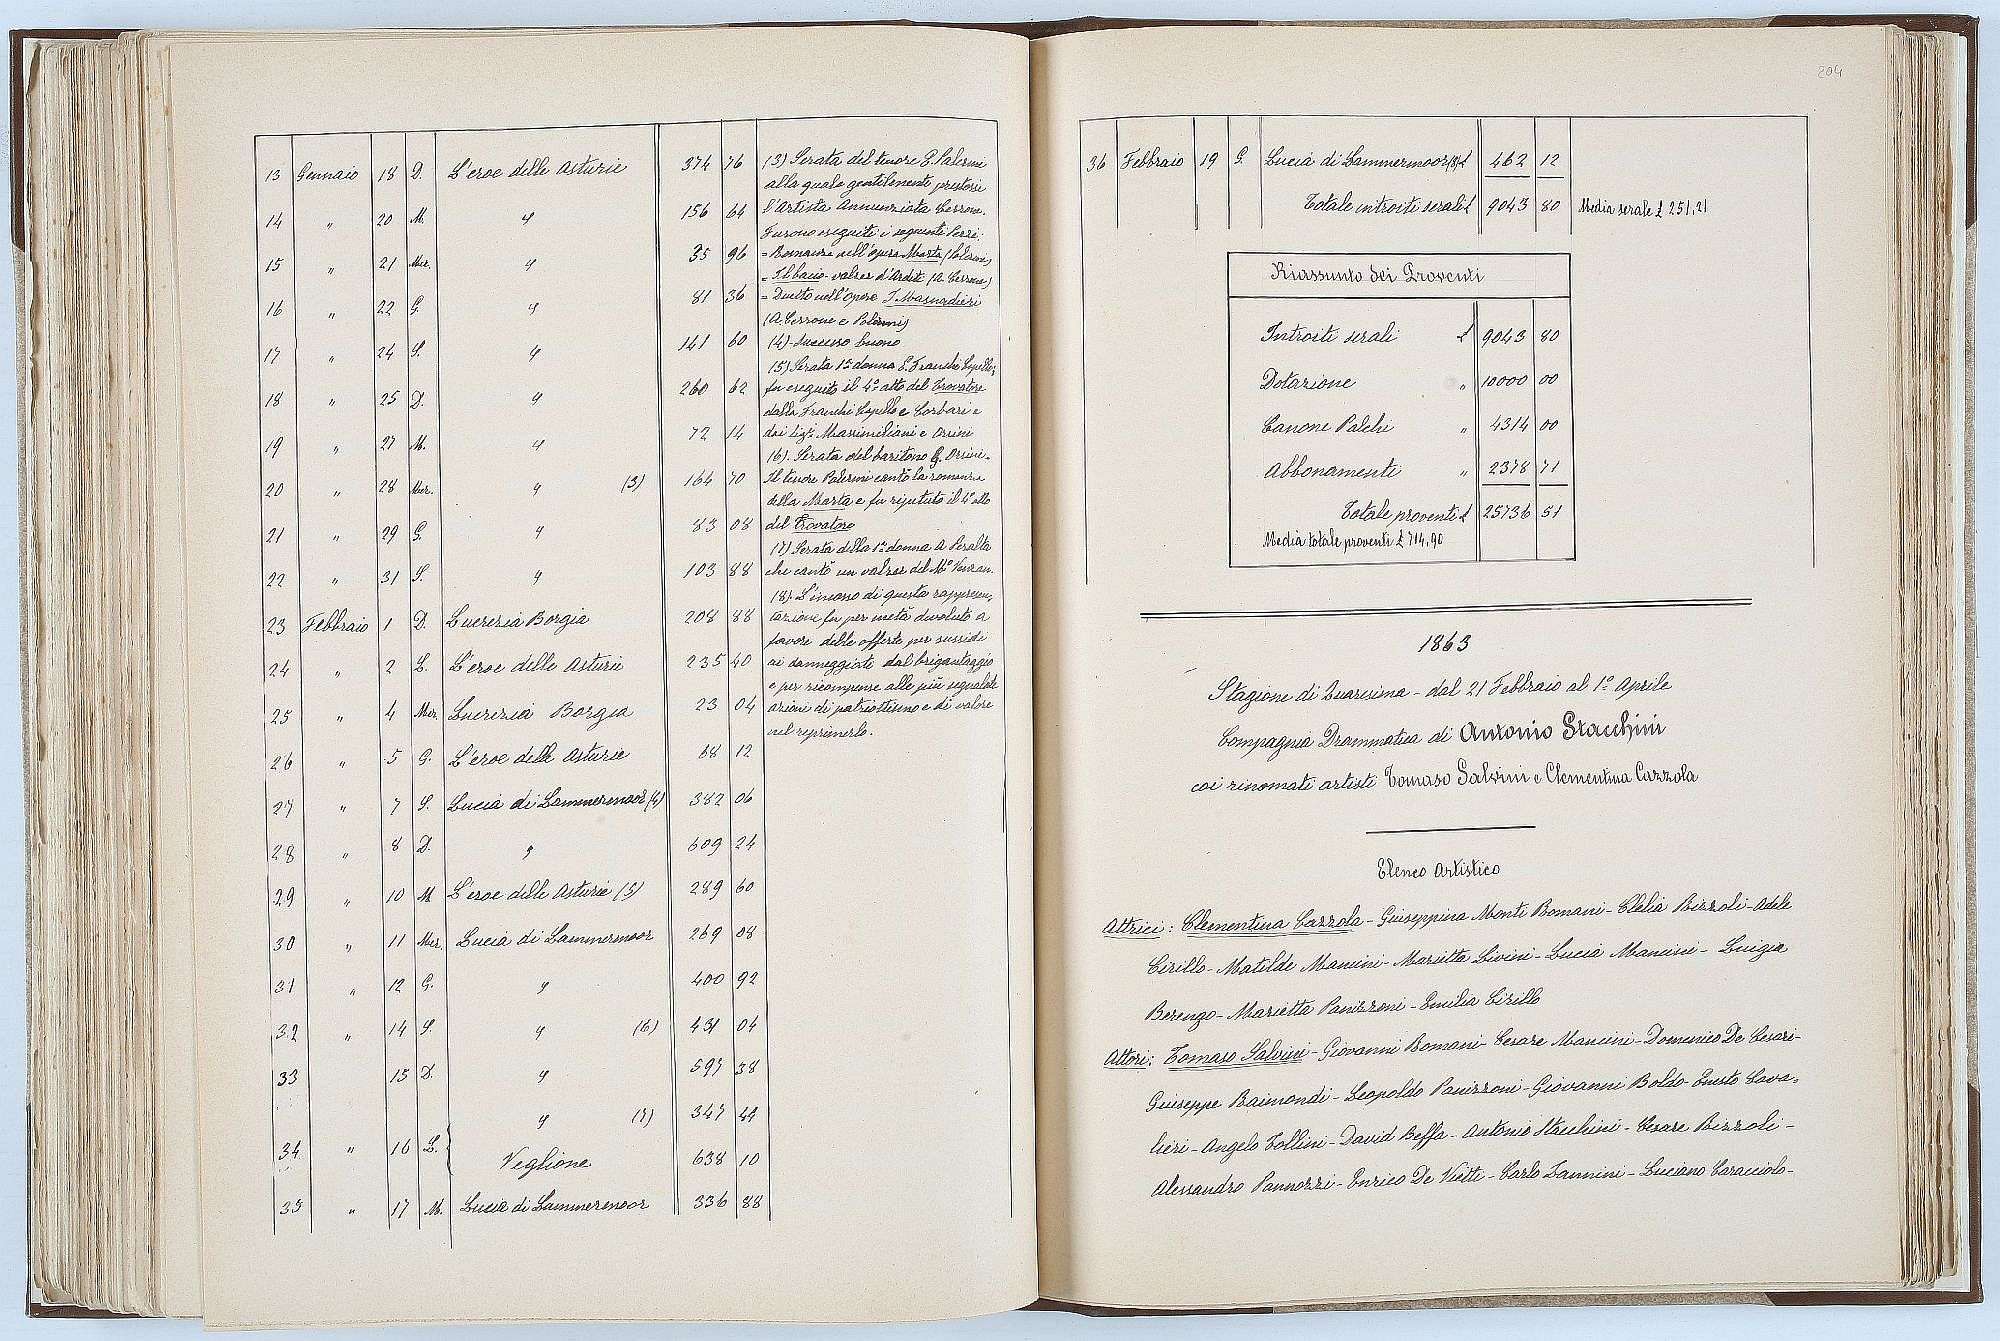 13 Gennaio 18 D. L'eroe delle Asturie 374 76
14 " 20 M. " 156 64
15 " 21 Mer. " 35 96
16 " 22 G. " 81 36
17 " 24 S. " 141 60
18 " 25 D. " 260 62
19 " 27 M. " 72 14
20 " 28 Mer. " (3) 164 70
21 " 29 G. " 83 08
22 " 31 S. " 103 88
23 Febbraio 1 D. Lucrezia Borgia 208 88
24 " 2 L. L'eroe delle Asturie 235 40
25 " 4 Mer. Lucrezia Borgia 23 04
26 " 5 G. L'eroe delle Asturie 68 12
27 " 7 S. Lucia di Lammermoor (4) 382 06
28 " 8 D. " 609 24
29 " 10 M. L'eroe delle Asturie (5) 289 60
30 " 11 Mer. Lucia di Lammermoor 269 08
31 " 12 G. " 400 92
32 " 14 S. " (6) 431 04
33 15 D. " 597 38
" (7) 347 44
34 " 16 L.
Veglione 638 10
35 " 17 M. Lucia di Lammermoor 336 88
(3) Serata del tenore E. Palermi
alla quale gentilmente prestossi
l'Artista Annunziata Cerrone.
Furono eseguiti i seguenti Pezzi.
= Romanza nell'opera Marta (Palermi)
= Il bacio - valzer d'Arditi (A. Cerrone)
= Duetto nell'opera I Masnadieri
(A. Cerrone e Palermi)
(4) Successo buono
(5) Serata 1ª donna E. Franchi Capello;
fu eseguito il 4° atto del Trovatore
dalla Franchi Capello e Corbari e
dai Sigri Massimiliani e Orsini
(6). Serata del baritono G. Orsini.
Il tenore Palermi cantò la romanza
della Marta e fu riputato il 4° atto
del Trovatore
(7) Serata della 1ª donna A. Peralta
che cantò un valzer del Mº Venzan.
(8). L'incasso di questa rappresen,
tazione fu per metà devoluto a
favore delle offerte per sussidi
ai danneggiati dal brigantaggio
e per ricompense alle più segnalate
azioni di patriottismo e di valore
nel reprimerlo.
204
36 Febbraio 19 G. Lucia di Lammermoor (8) £ 462 12
Totale introiti serali £ 9043 80 Media serale £ 251,21
Riassunto dei Proventi
Introiti serali £ 9043 80
Dotazione " 10000 00
Canone Palchi " 4314 00
Abbonamenti " 2378 71
Totale proventi £ 25736 51
Media totale proventi £ 714,90
1863
Stagione di Quaresima - dal 21 Febbraio al 1° Aprile
Compagnia Drammatica di Antonio Stacchini
coi rinomati artisti Tomaso Salvini e Clementina Cazzola
Elenco Artistico
Attrici: Clementina Cazzola - Giuseppina Monti Romani - Clelia Bizzoli - Adele
Cirillo - Matilde Mancini - Marietta Livini - Lucia Mancini - Luigia
Berengo - Marietta Panizzoni - Emilia Cirillo
Attori: Tomaso Salvini - Giovanni Romani - Cesare Mancini - Domenico De Cesari -
Giuseppe Raimondi - Leopoldo Panizzoni - Giovanni Boldo - Questo Cava,
lieri - Angelo Tollini - David Beffa - Antonio Stacchini - Cesare Bizzoli -
Alessandro Pannozzi - Enrico De Vietti - Carlo Zannini - Luciano Caracciolo -